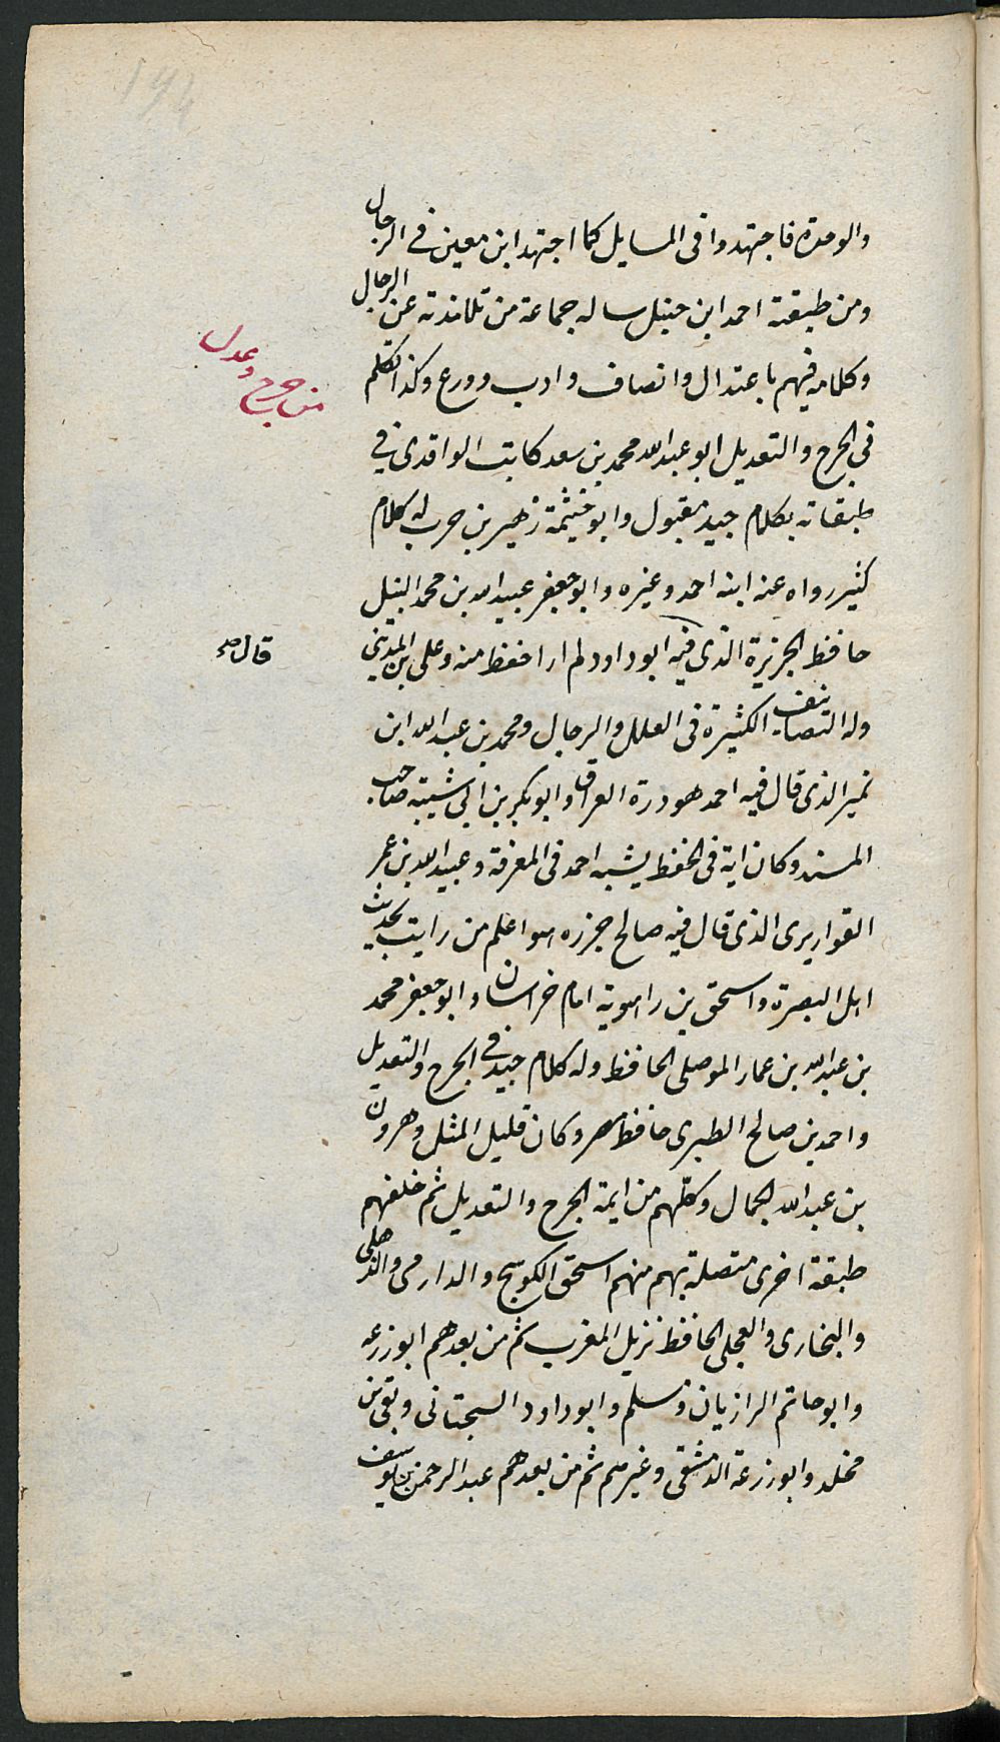 والوحدة فاجتهدوا فى المسايل كما اجتهد ابن معين في الرجال
ومن طبقته احمد ابن حنبل ساله جماعة من تلامذته عن الرجال
وكلامه فيهم باعتدال وانصاف وادب وورع وكذا تكلم
من جرح وعدل
فى الجرح والتعديل ابو عبد الله محمد بن سعد كاتب الواقدى في
طبقاته بكلام جيد مقبول وابو خيثمة زهير بن حرب له كلام
كثير رواه عنه ابنه احمد وغيره وابو جعفر عبيد الله بن محمد النبيل
حافظ الجزيرة الذى فيه ابو داود لم ار احفظ منه وعلى بن المدينى
قال صح
وله التصانيف الكثيرة فى العلل والرجال ومحمد بن عبد الله ابن
نمير الذى قال فيه احمد هو درة العراق وابو بكر بن ابى شيبة صاحب
المسند وكان اية فى الحفظ يشبه احمد فى المعرفة وعبيد الله بن عمر
القواريرى الذى قال فيه صالح جزره هو اعلم من رايت بحديث
اهل البصرة واسحق بن راهوية امام خراسان وابو جعفر محمد
بن عبد الله بن عمار الموصلى الحافظ وله كلام جيد في الجرح والتعديل
واحمد بن صالح الطبرى حافظ مصر وكان قليل المثل وهرون
بن عبد الله الجمال وكلهم من ايمة الجرح والتعديل ثم خلفهم
طبقة اخرى متصلة بهم منهم اسحق الكوسج والدارمى والذهلى
والبخارى والعجلى الحافظ نزيل المغرب ثم من بعدهم ابو زرعه
وابو حاتم الرازيان ومسلم وابو داود السجتانى وبقى بن
مخلد وابو زرعة الدمشقى وغيرهم ثم من بعدهم عبد الرحمن بن يوسف